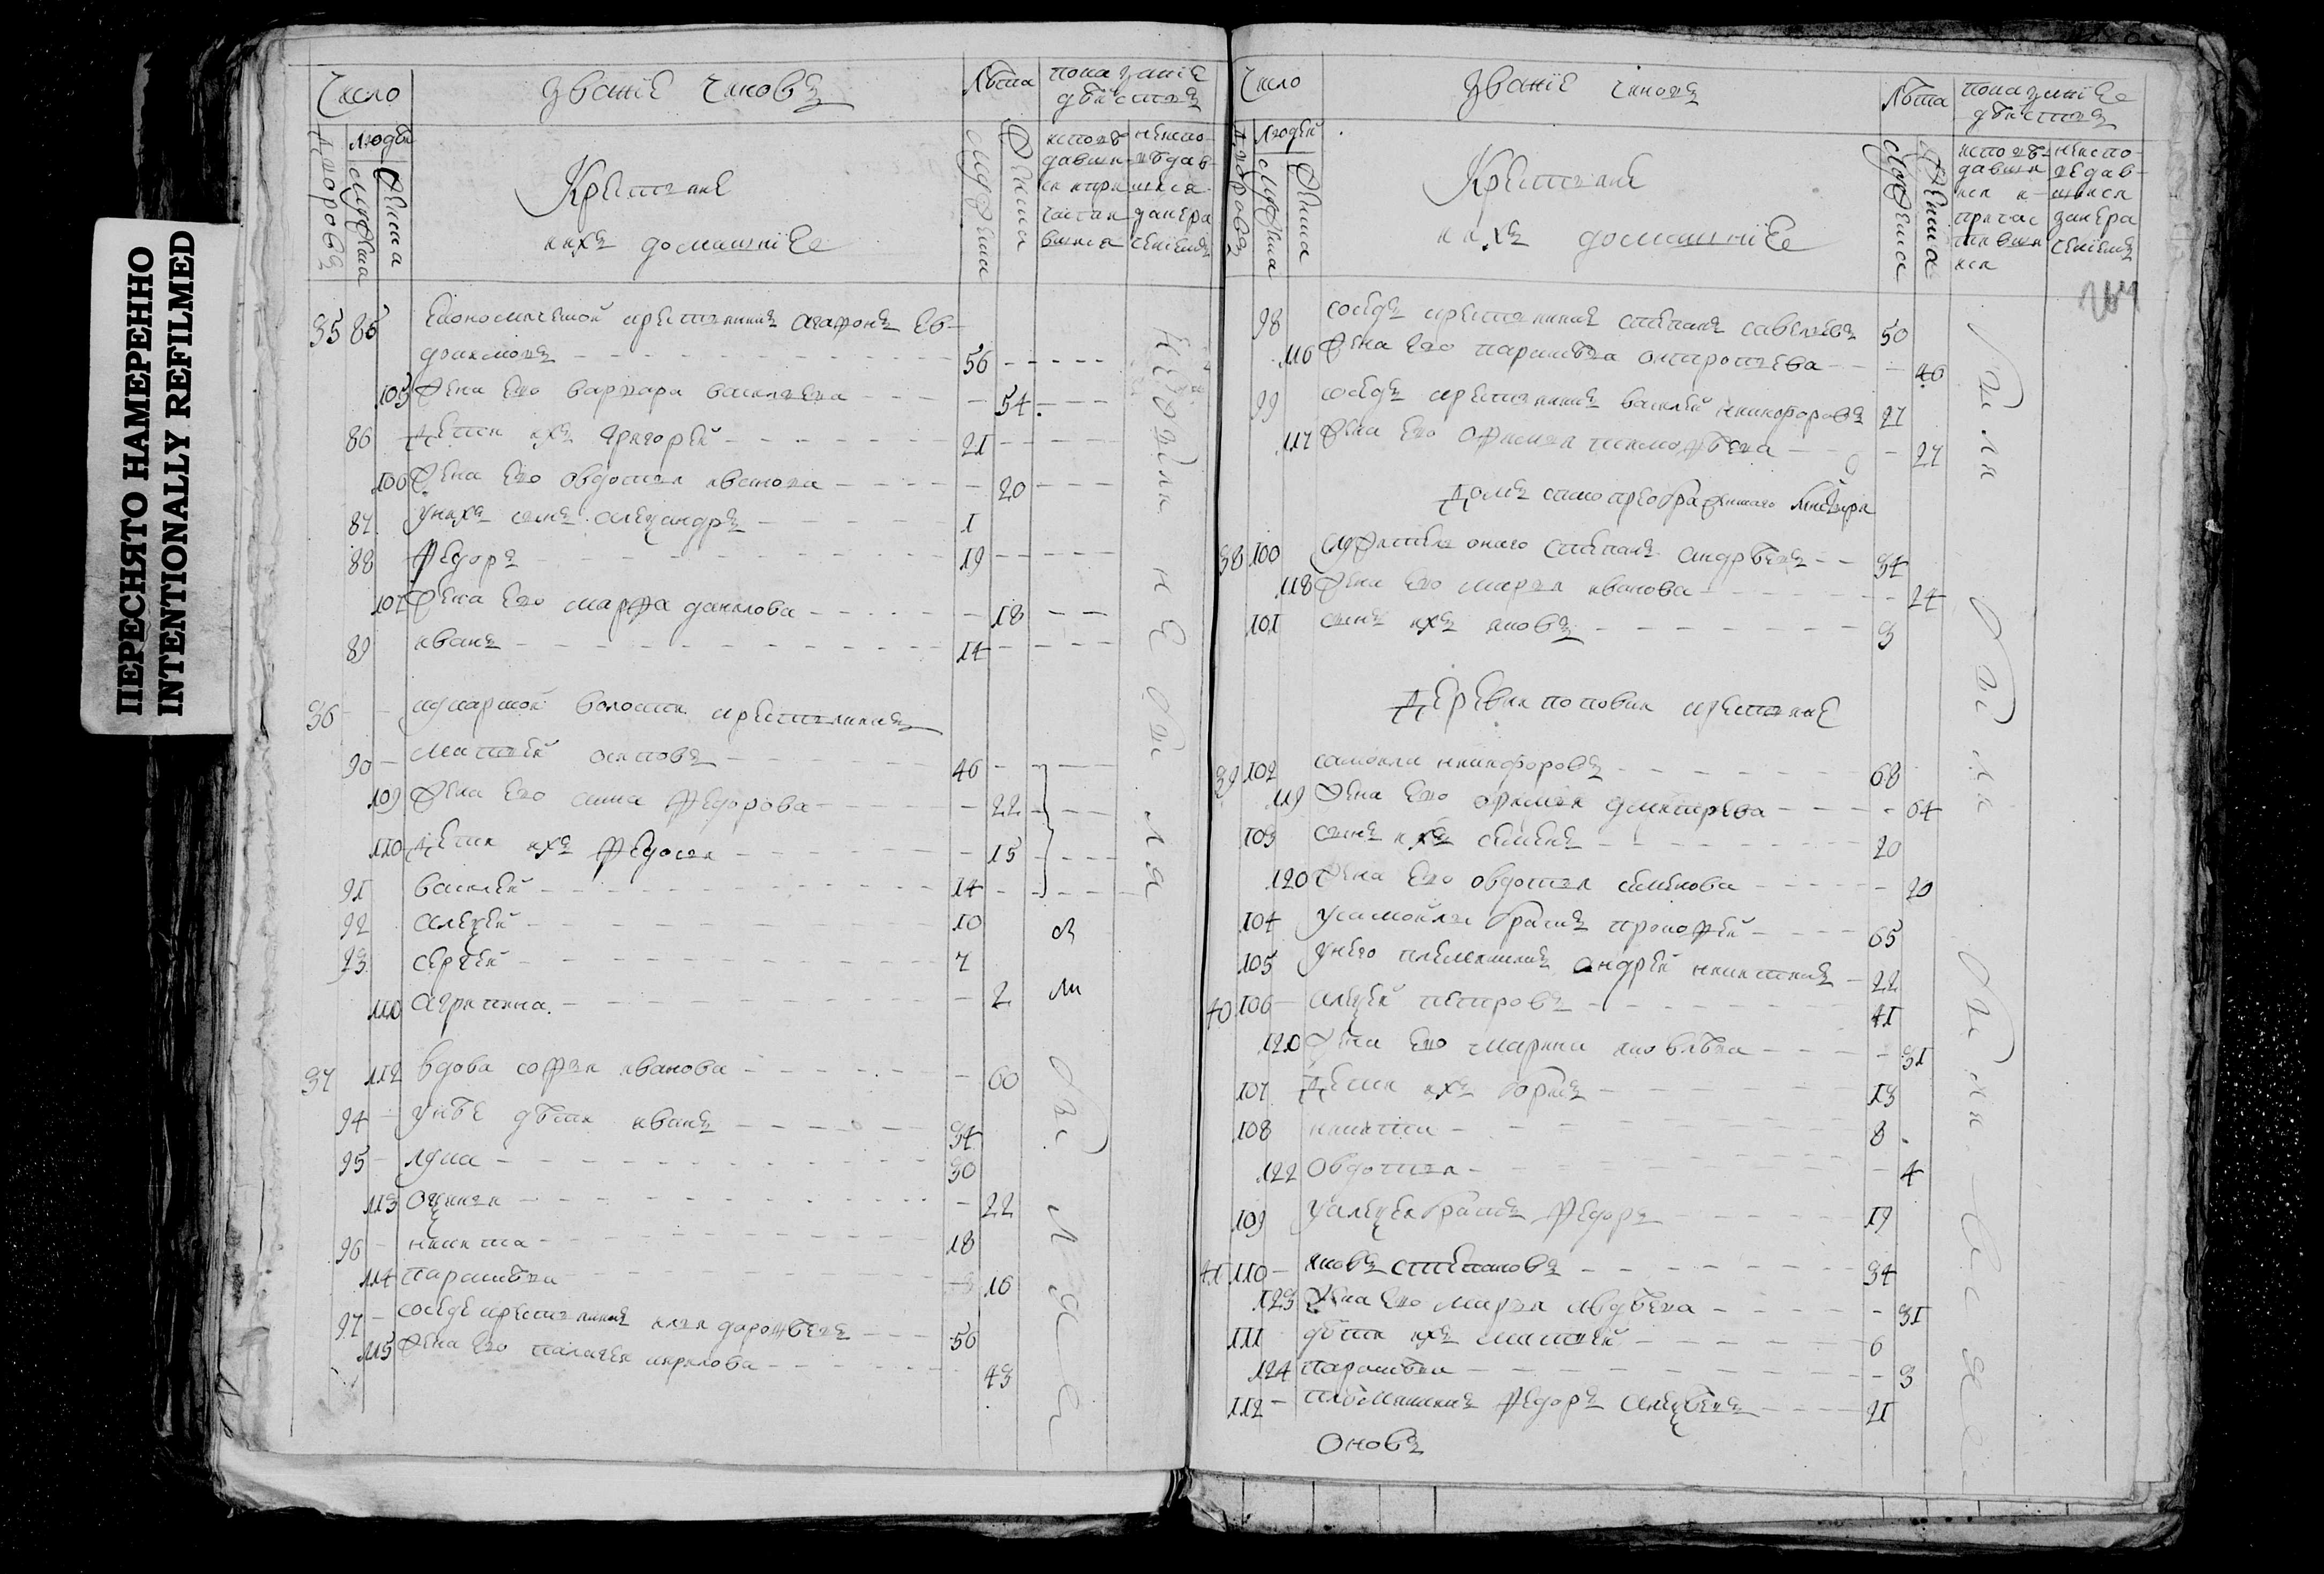 ПЕРЕСНЯТО НАМЕРЕННО
INTENTIONALLY REFILMED
Число
званїе чиновъ
Лѣта
показанїе
дѣйствъ
Дворовъ
людѣй
мужеска
женска
Крестьяне
и ихъ домашнїе
мужеска
женска
исповѣ неиспо-
давши- вѣдав-
ся и при шися
частив занера
шися ченїемъ
35 85 Економической крестьянинъ агафонъ ев-
докимовъ 56
105 Жена Его варвара василиева 54
86 Дети ихъ Григорей 21
106 Жена Его овдотья иванова 20
87 У нихъ сынъ алеѯандръ 1
88 Федоръ 19
107 Жена Его марфа данилова 18
89 иванъ 14
36 волости крестьянинъ
90 матвей осиповъ 46
109 Жена Его анна Федорова 22
110 Дети ихъ Федосья 15
91 василей 14
92 алеѯей 10
93 сергей 7
110 агрипина 2
37 112 вдова софья иванова 60
94 У нее дѣти иванъ 34
95 лука 30
113 Оѯинья 22
96 никита 18
114 парасковья 16
97 соседъ крестьянинъ илья дорофѣевъ 50
115 Жена Его палагея кирилова 43
Число
званїе чиновъ
Лѣта
показанїе
дѣйствъ
Дворовъ
людей
мужеска
женска
Крестьяне
и ихъ домашнїе
мужеска
женска
исповѣ- неиспо-
давши ведав-
ися и- шися
причас занера
тивши ченїемъ
ися
98 соседъ крестьянинъ степанъ савельевъ 50
116 Жена Его парасковья 46
99 соседъ крестьянинъ василей никифоровъ 27
117 Жена Его Офимья тимофѣева 27
Домъ спасопреображенского
38 100 Служитель оного Степанъ андрѣевъ 34
118 Жена Его марья иванова 24
101 сынъ ихъ яковъ 3
Деревни поповки крестьяне
39 102 самойла никифоровъ 68
119 Жена Его офимья дмитрева 64
103 сынъ ихъ семенъ 20
120 Жена Его овдотья семенова 20
104 У самойлы братъ прокофей 65
105 У него племянникъ андрей никитинъ 22
40 106 алеѯей петровъ 41
120 Жена Его марина яковлева 31
107 Дети ихъ борисъ 13
108 никита 8
122 Овдотья 4
109 У алеѯея братъ Федоръ 19
41 110 яковъ степановъ 34
123 Жена Его марья авдѣева 31
111 дѣти ихъ матвей 6
124 парасковья 3
112 племянникъ Федоръ алеѯѣевъ 21
Оновъ